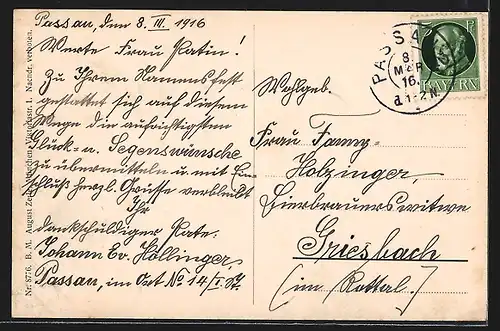 Passau, den 8. III. 1916
Werte Frau Patin!
Zu Ihrem Namensfest
gestattet sich auf diesem
Wege die aufrichtigsten
Glück- u. Segenswünsche
zu übermitteln u. mit Ein-
schluß herzl. Grüsse verbleibt
Ihr
dankschuldiger Pate:
Johann Ev. Höllinger,
Passau, im Ort No 14/I. St.
Nr. 8776. B. M. August Zerle, München, 1. Nachdr. verboten.
PASSAU
8.
MÄR
16.
BAYERN
Wohlgeb.
Frau Fanny
Holzinger,
Bierbrauerswitwe
Griesbach
(im Rottal.)